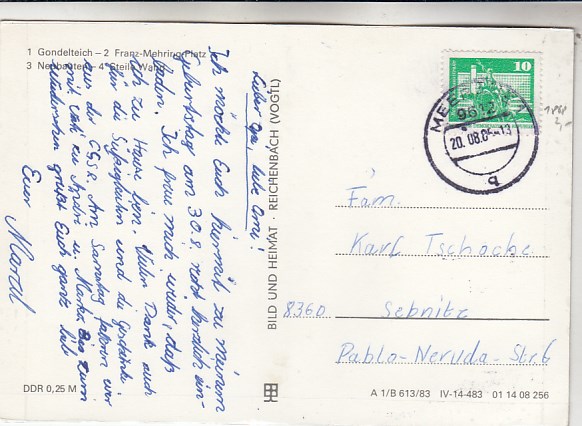 1 Gondelteich – 2 Franz-Mehring-Platz
3 Neubauten – 4 Steile Wand
Lieber Opa, liebe Omi!
Ich möchte Euch hiermit zu meinem
Geburtstag am 30.8. recht herzlich ein-
laden. Ich freu mich wieder, daß
ich zu Hause bin. Vielen Dank auch
für die Süßigkeiten und die Geschenke
aus der ČSSR. Am Samstag fahren wir
mit Vati zu André u. Marko. Bis zum
Wiedersehen grüßt Euch ganz lieb
Euer Marcel
DDR 0,25 M
BILD UND HEIMAT · REICHENBACH (VOGTL)
10
MEERANE
9612
20.08.85-13
a
Fam.
Karl Tschoche
8360 Sebnitz
Pablo-Neruda-Str. 6
A 1/B 613/83 IV-14-483 01 14 08 256